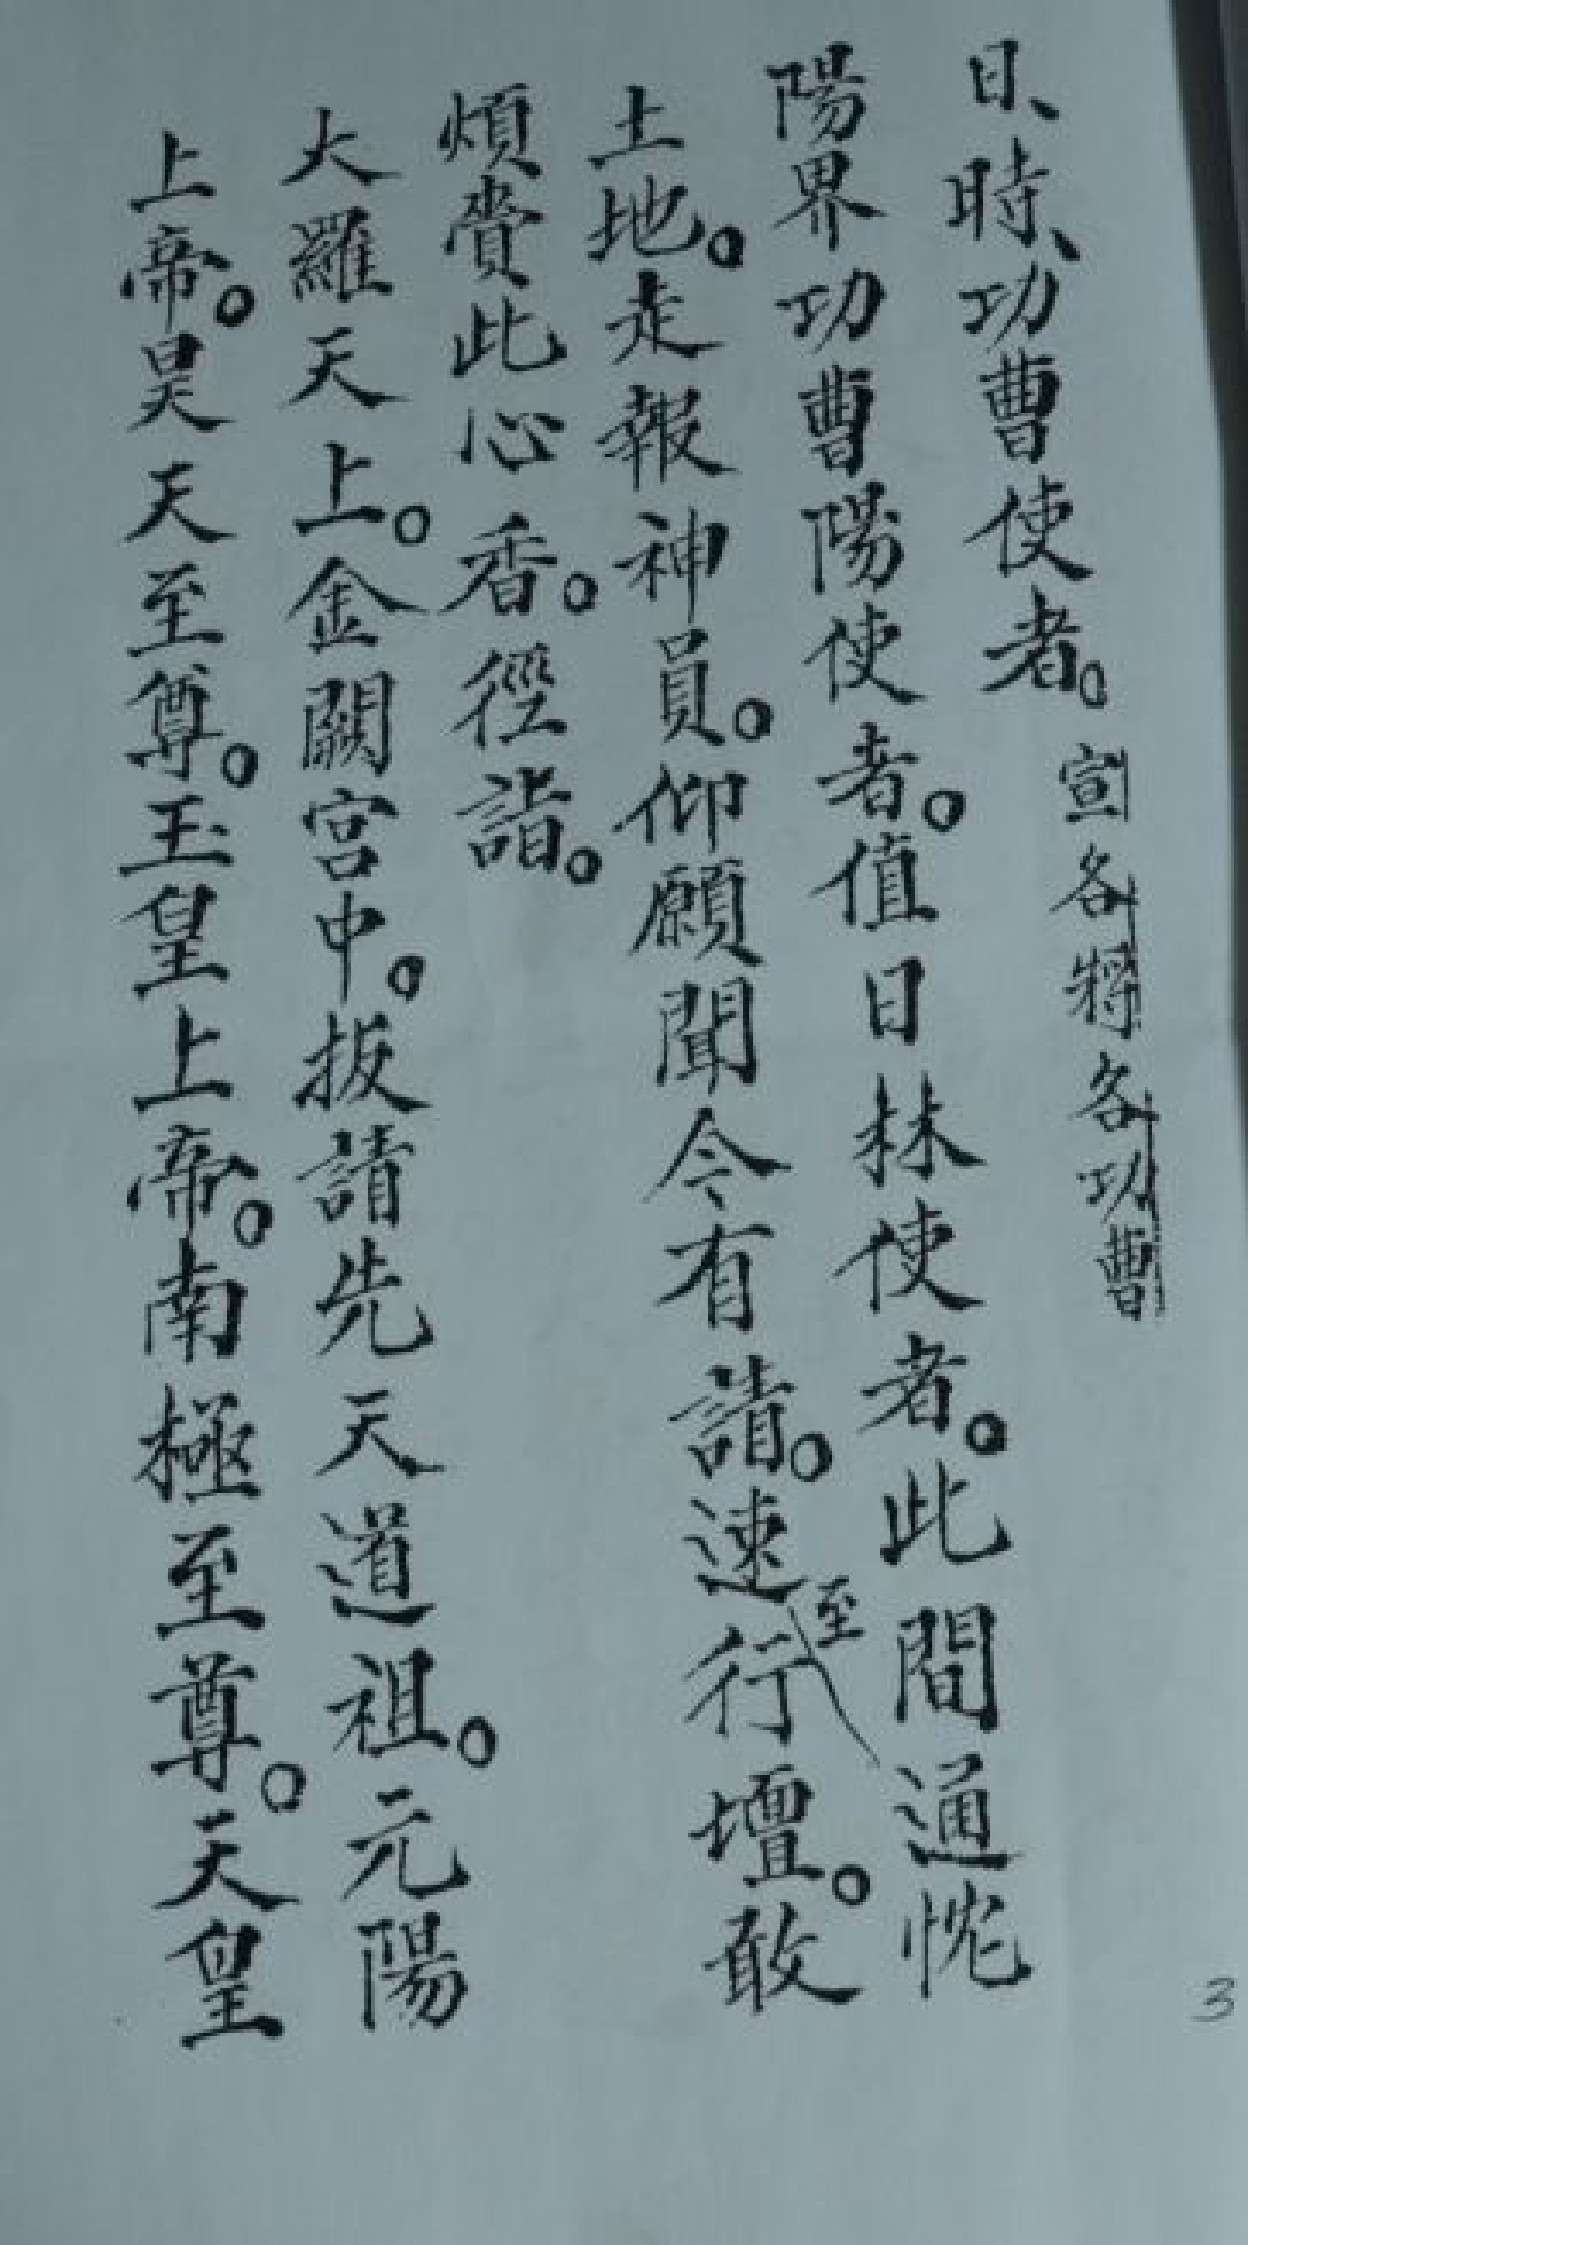 日、時、功曹使者。宣各將各功曹
陽界功曹陽使者。值日林使者。此間通忱
土地。走報神員。仰願聞今有請。速行至壇。敢
煩賫此心香。徑詣。
大羅天上。金闕宮中。拔請先天道祖。元陽
上帝。昊天至尊。玉皇上帝。南極至尊。天皇
3